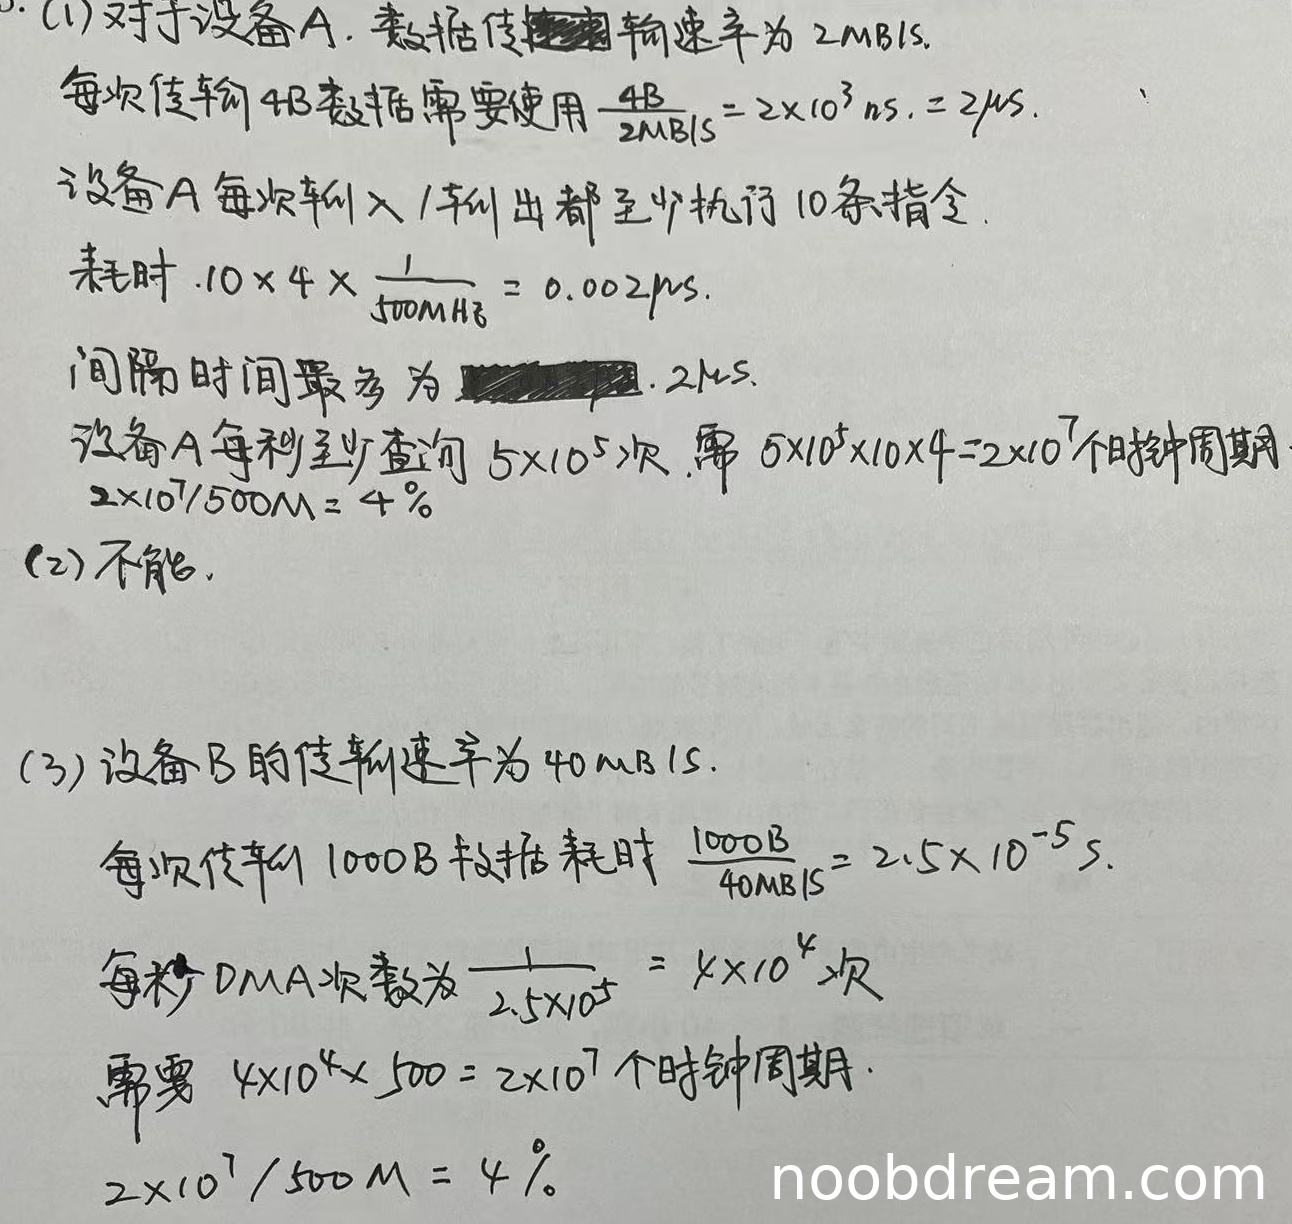 (1) 对于设备A. 数据传输速率为 2MB/s.
每次传输4B数据需要使用 4B/2MB/s = 2×10³ ns. = 2μs.
设备A每次输入/输出都至少执行10条指令.
耗时.10×4×1/500MHz = 0.002μs.
间隔时间最多为 . 2μs.
设备A每秒至少查询 5×10⁵次. 需 5×10⁵×10×4=2×10⁷个时钟周期.
2×10⁷/500M = 4%
(2) 不能.
(3) 设备B的传输速率为40MB/s.
每次传输1000B数据耗时 1000B/40MB/s = 2.5×10⁻⁵s.
每秒DMA次数为 1/2.5×10⁵ = 4×10⁴次
需要 4×10⁴×500 = 2×10⁷个时钟周期.
2×10⁷/500M = 4%
noobdream.com